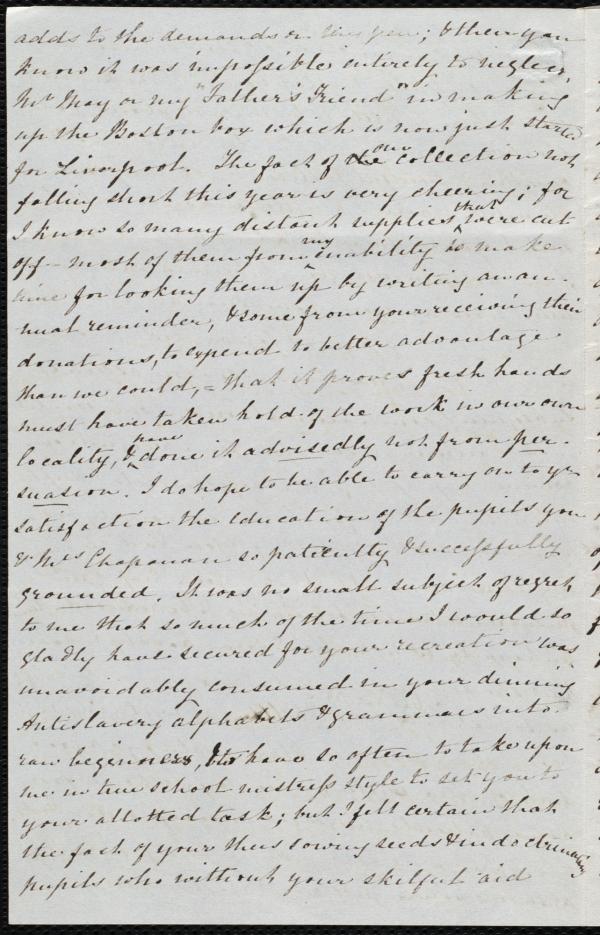 adds to the demands on time pen; & then you
know it was impossible entirely to neglect
Mr May or my "Father's Friend" in making
up the Boston box which is now just started
for Liverpool. The fact of the our collection not
falling short this year is very cheering; for
I know so many distant supplies that were cut
off - most of them from my inability to make
time for looking them up by writing an an-
nual reminder, & some from your receiving their
donations, to expend to better advantage
than we could, = that it proves fresh hands
must have taken hold of the work in our own
locality, & have done it advisedly not from per-
suasion. I do hope to be able to carry on to yr
satisfaction the education of the pupils you
& Mrs Chapman so patiently & successfully
grounded. It was no small subject of regret
to me that so much of the time I would so
gladly have secured for your recreation was
unavoidably consumed in your dinning
Antislavery alphabets & grammars into
raw beginners, & to have so often to take upon
me in true school mistress style to set you to
your allotted task; but I felt certain that
the fact of your thus sowing seeds & indoctrinating
pupils who without your skilful aid